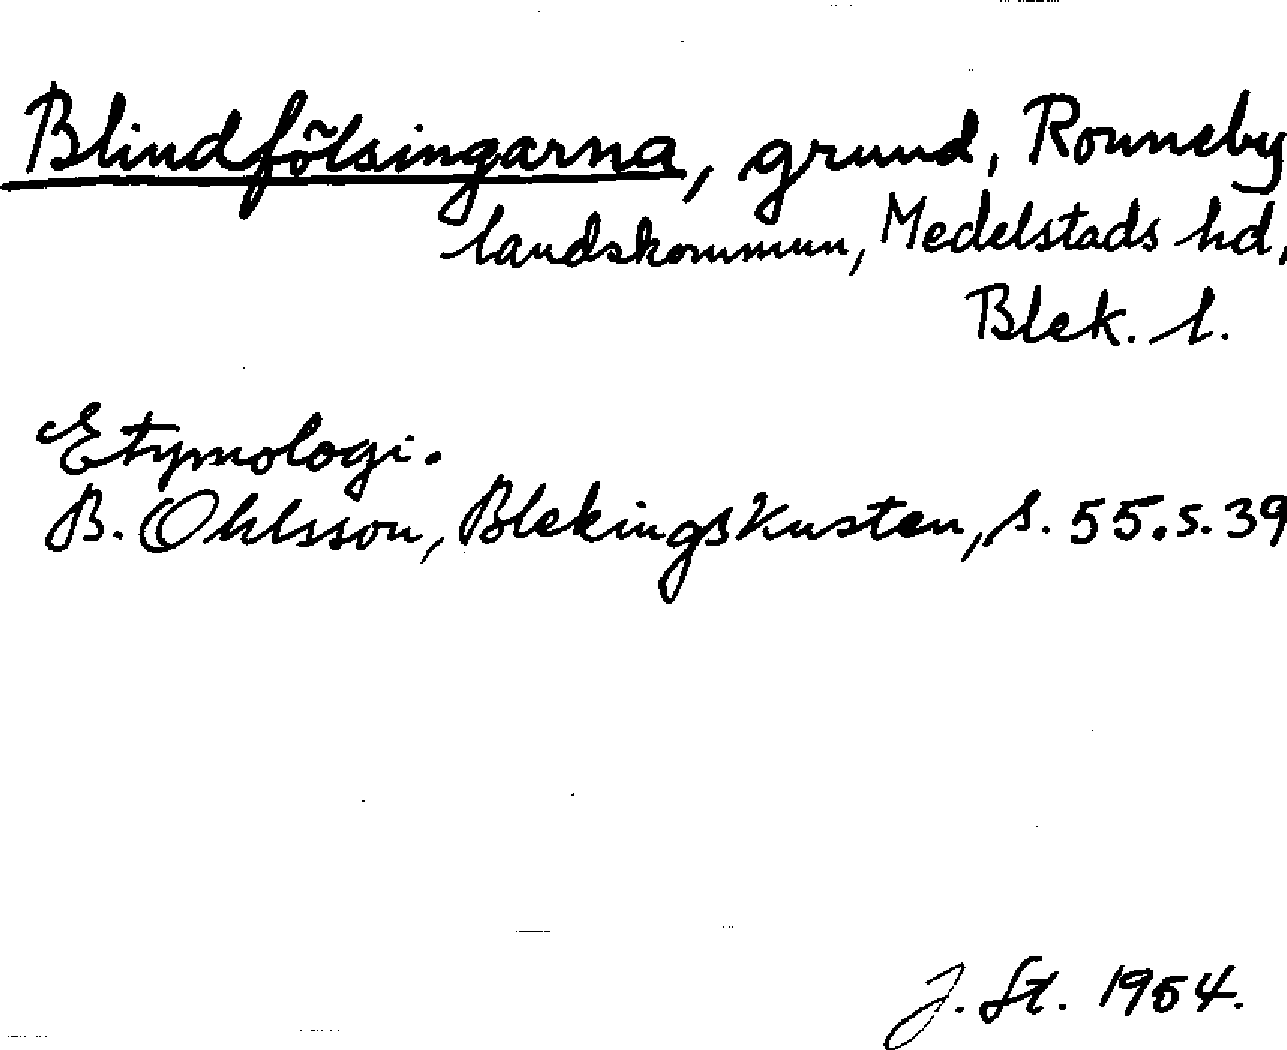 Blindfölsingarna, grund, Ronneby
landskommun, Medelstads hd,
Blek. l.
Etymologi.
B. Ohlsson, Blekingskusten, s. 55. s. 39
J. St. 1954.